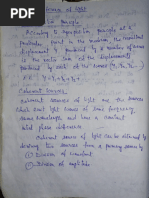 of light
principle
According to superposition principle at a
particular point in the medium, the resultant
displacement y produced by a number of waves
is the vector sum of the displacements
produced by each of the waves (y₁, y₂, y₃ ..
Coherent sources
Coherent sources of light are the sources
which emit light waves of same frequency,
same wavelength and have a constant
initial phase difference.
Coherent source of light can be obtained by
deriving two sources from a primary source by
(i) Division of wavefront
(ii) Division of amplitude